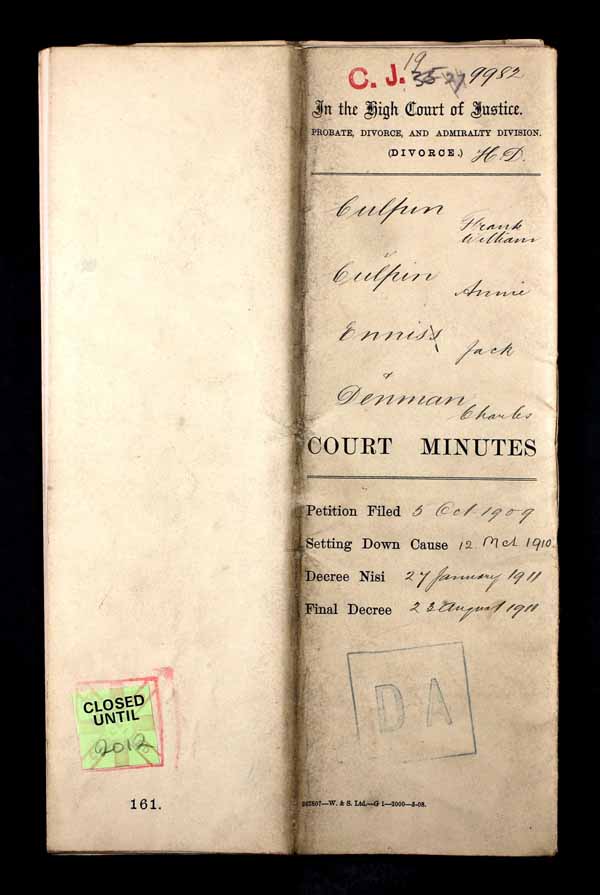 CLOSED
UNTIL
2012
161.
19
C. J. 35 27 9982
In the High Court of Justice.
PROBATE, DIVORCE, AND ADMIRALTY DIVISION.
(DIVORCE.) H. D.
Culpin
Frank
William
v
Culpin
Annie
Enniss
Jack
&
Denman
Charles
COURT MINUTES
Petition Filed 5 Oct 1909
Setting Down Cause 12. Mch 1910.
Decree Nisi 27 January 1911
Final Decree 23 August 1911
DA
—W. & S. Ltd.—G 1—2000—5-08.